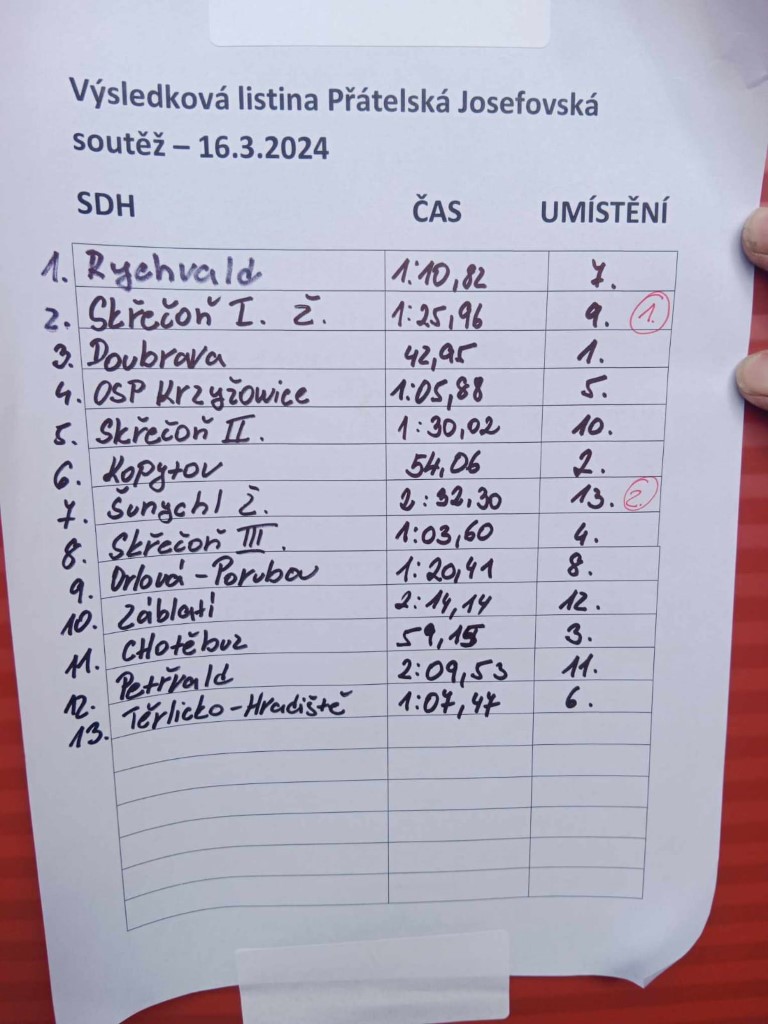 Výsledková listina Přátelská Josefovská
soutěž – 16.3.2024
SDH ČAS UMÍSTĚNÍ
1. Rychvald 1:10,82 7.
2. Skřečoň I. Ž. 1:25,96 9. 1.
3. Doubrava 42,95 1.
4. OSP Krzyżowice 1:05,88 5.
5. Skřečoň II. 1:30,02 10.
6. Kopytov 54,06 2.
7. Šunychl Ž. 2:32,30 13. 2.
8. Skřečoň III. 1:03,60 4.
9. Orlová-Poruba 1:20,41 8.
10. Záblatí 2:14,14 12.
11. CHotěbuz 59,15 3.
12. Petřvald 2:09,53 11.
13. Těrlicko-Hradiště 1:07,47 6.